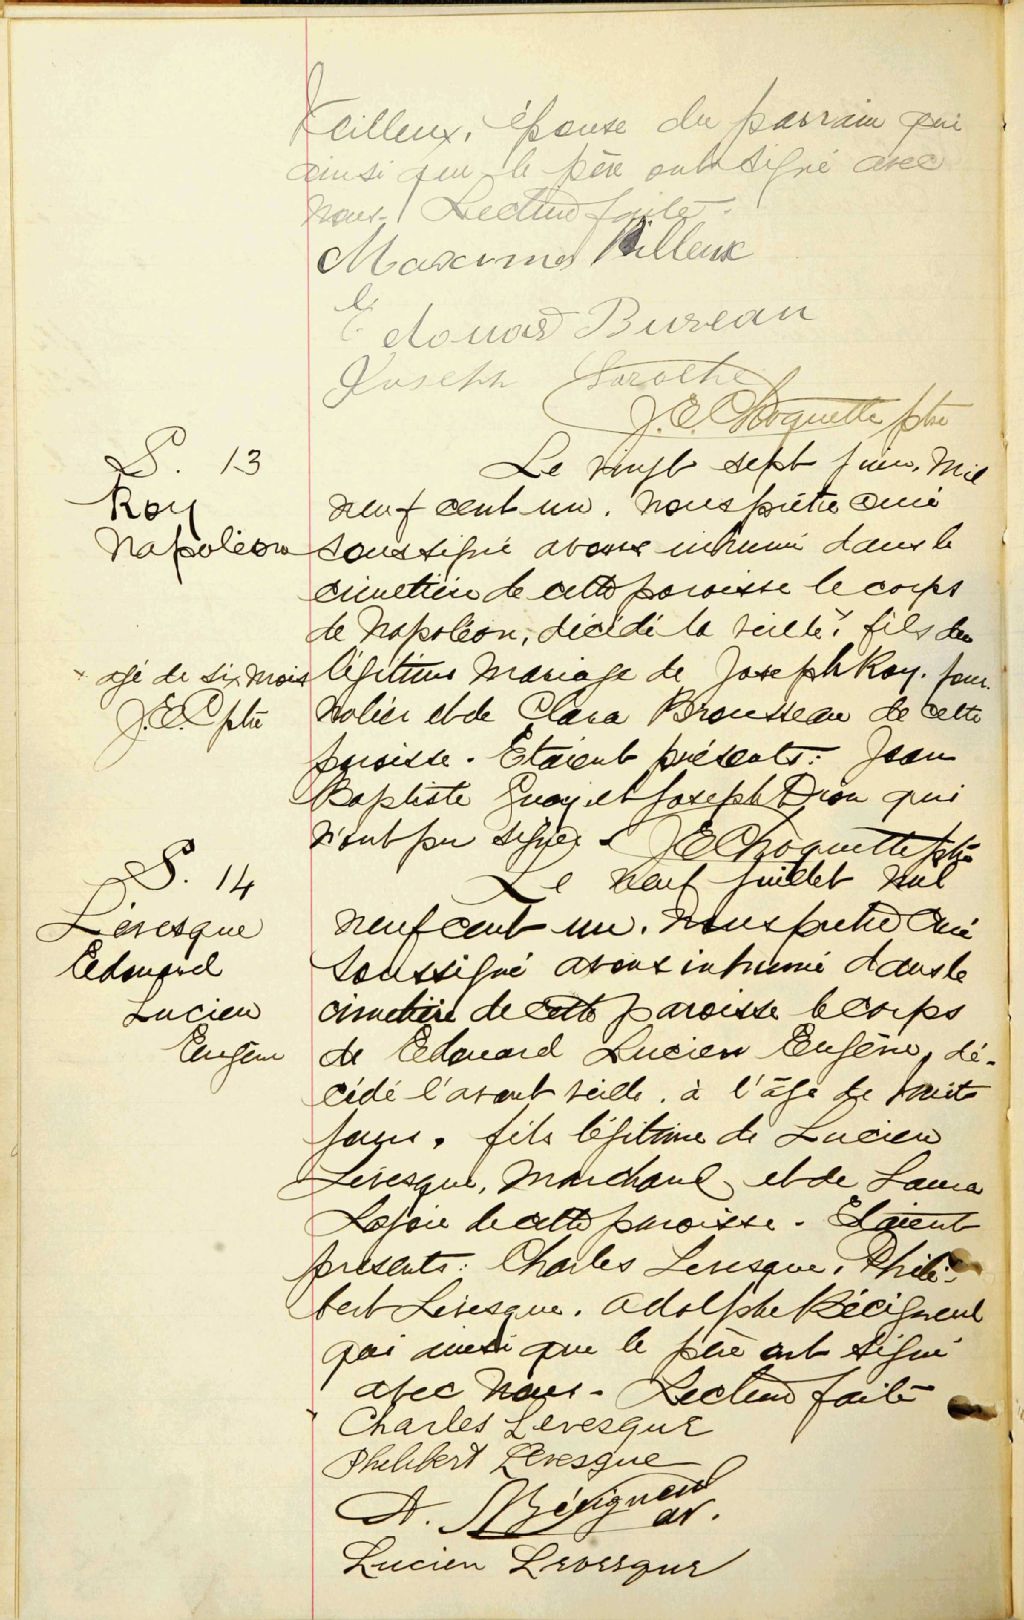 Veilleux, épouse du parrain qui
ainsi que le père ont signé avec
nous. Lecture faite.
Maxime Veilleux
Edouard Bureau
Joseph Laroche
J. E. Choquette ptre
S. 13
Roy
Napoléon
Le vingt sept juin, mil
neuf cent un. Nous prêtre curé
soussigné avons inhumé dans le
cimetière de cette paroisse le corps
de Napoléon, décédé la veille, × fils du
× agé de six mois
J.E.C ptre
légitime mariage de Joseph Roy, jour-
nalier et de Clara Brousseau de cette
paroisse. Etaient présents: Jean
Baptiste et Joseph Dion qui
n'ont pu signer. J E Choquette ptre
S. 14
Lévesque
Edouard
Lucien
Eugène
Le neuf juillet mil
neuf cent un. Nous prêtre curé
soussigné avons inhumé dans le
cimetière de cette paroisse le corps
de Edouard Lucien Eugène, dé-
cédé l'avant veille, à l'âge de huit
jours, fils légitime de Lucien
Lévesque, marchand, et de Laura
Lajoie de cette paroisse. Etaient
présents: Charles Levesque, Phili-
bert Lévesque, Adolphe Bécigneul
qui ainsi que le père ont signé
avec nous. Lecture faite
Charles Levesque
Philibert Levesque
A. Bécigneul
av.
Lucien Levesque